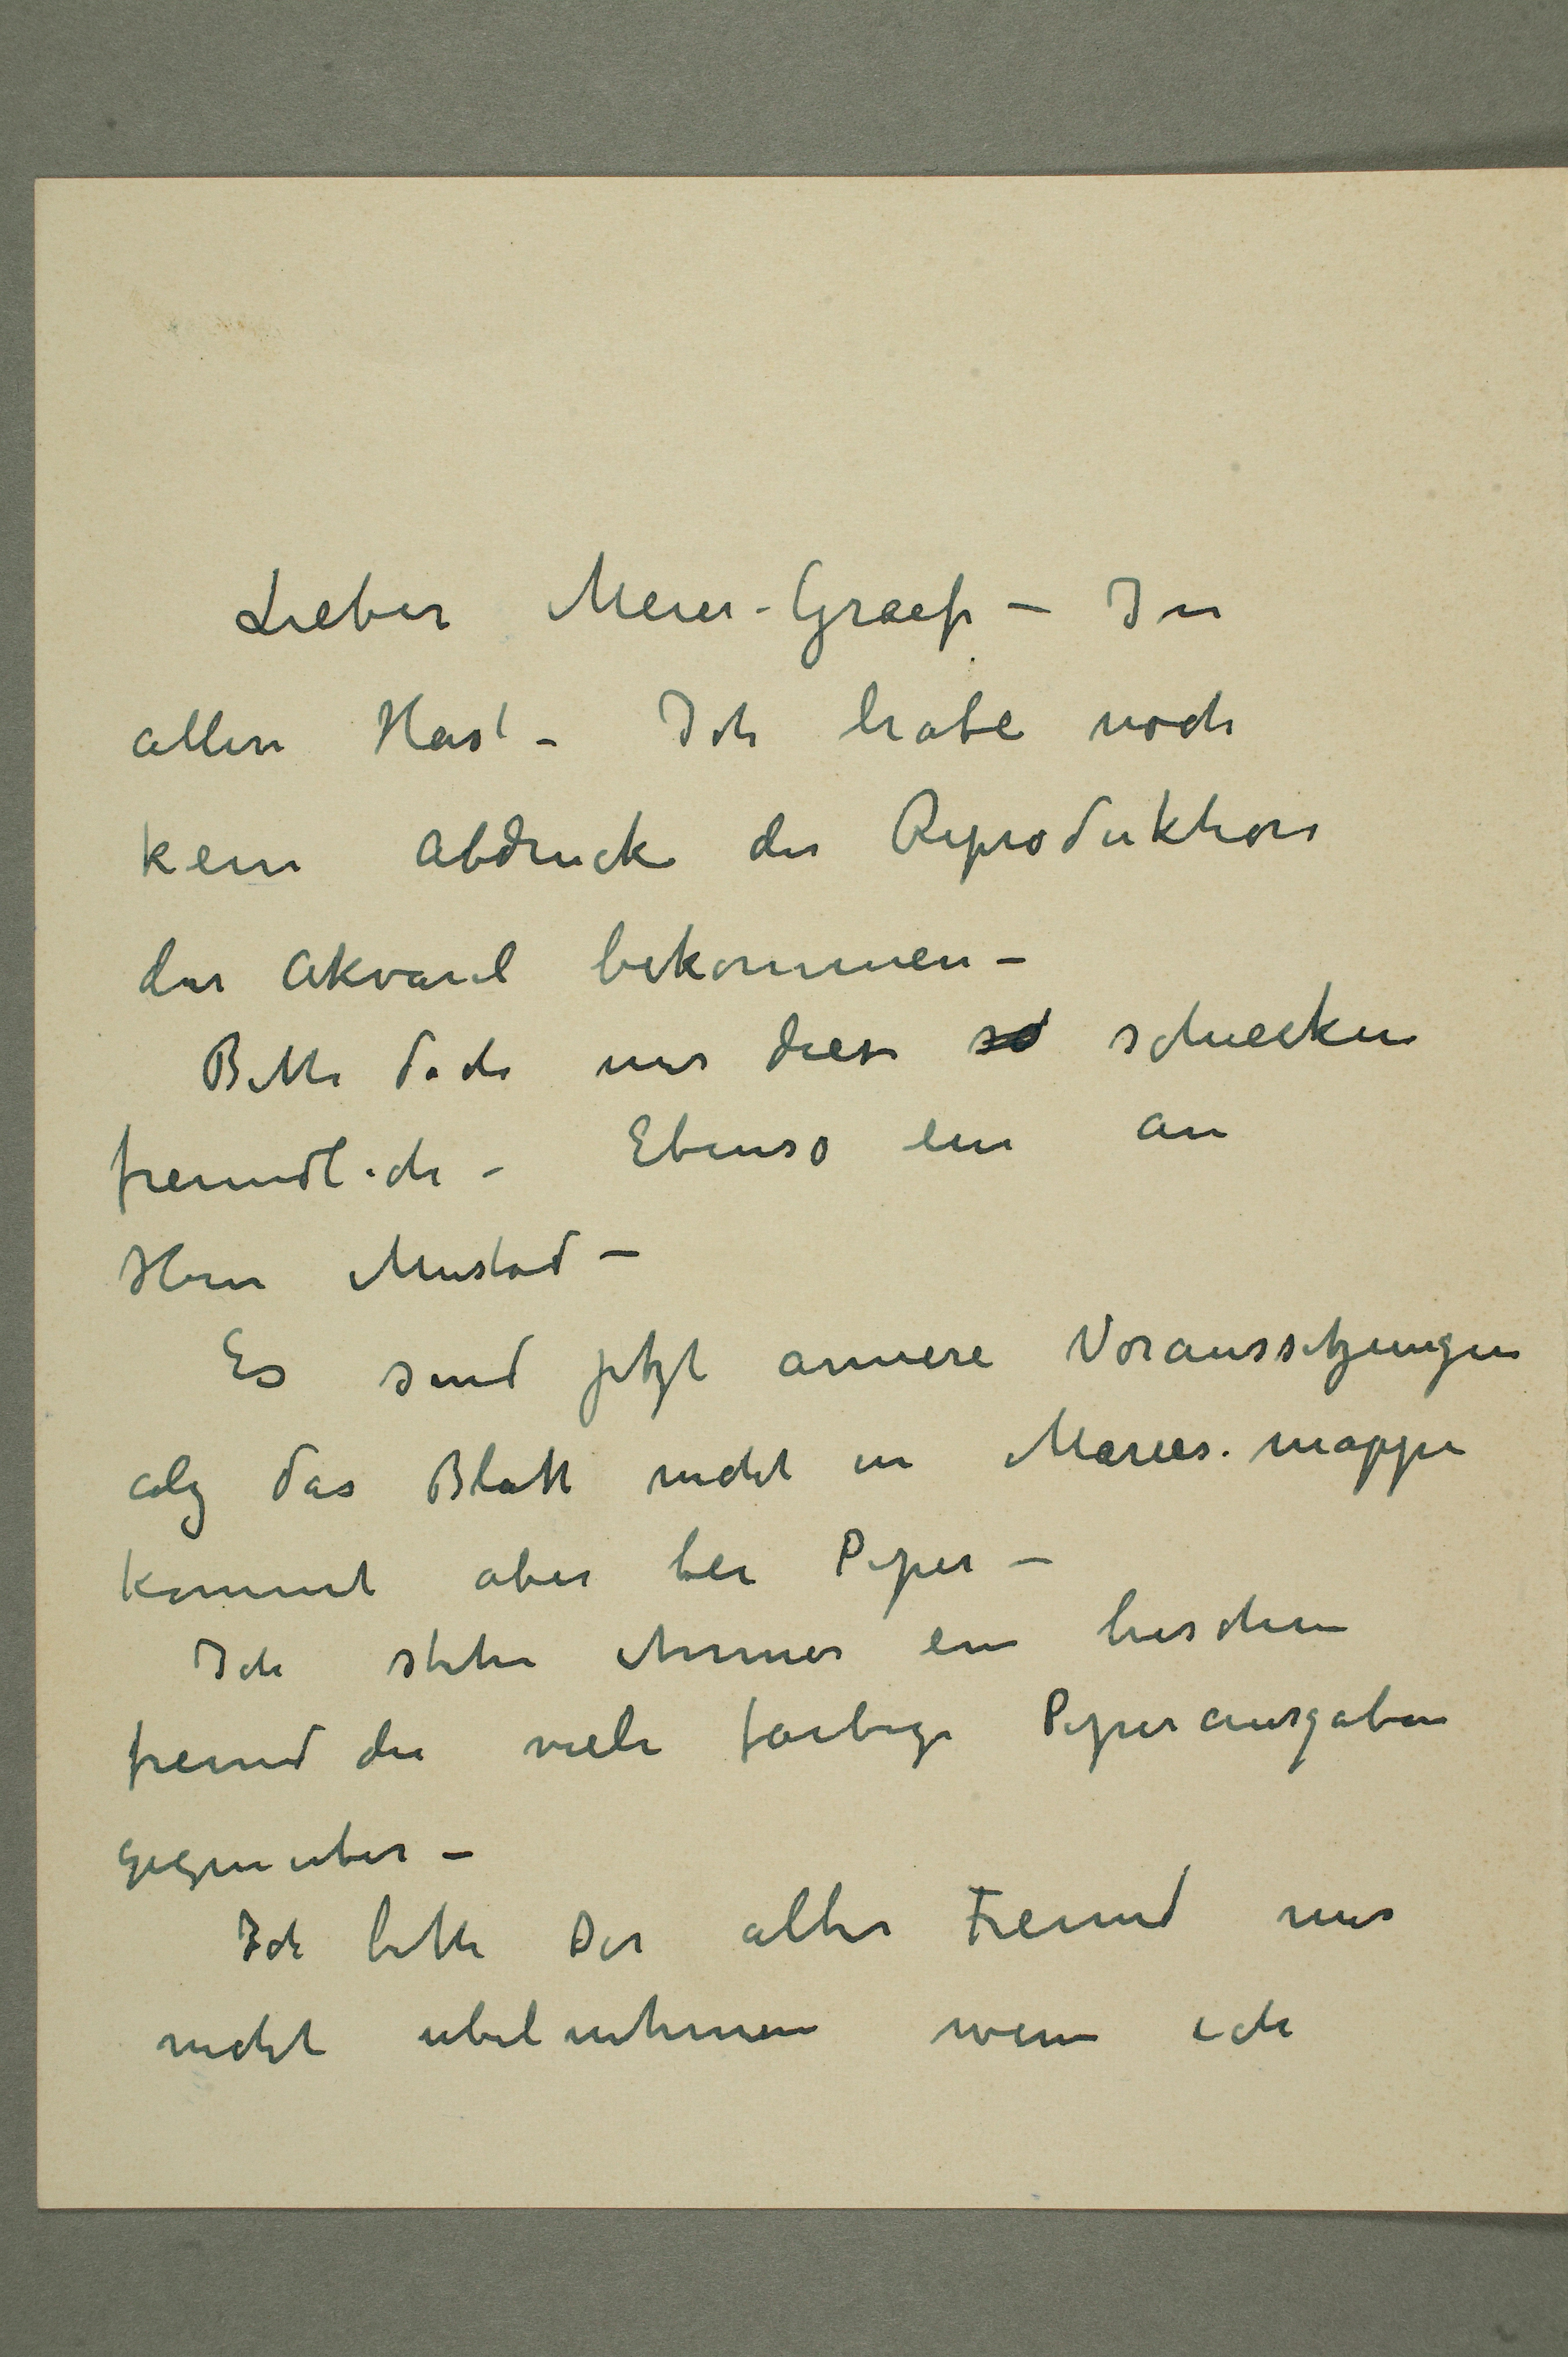 Lieber Meier-Graefe – In
allen Hast – Ich habe noch
kein Abdruck der Reproduktion
der Akvarel bekommen –
Bitte doch mir diese so schicken
freundlich – Ebenso ein an
Herrn Mustad –
Es sind jetzt annere Voraussetzungen
als das Blatt nicht in Marees-mappe
kommt aber bei Piper –
Ich stehe immer ein bischen
fremd die viele farbige Piperausgaben
gegenuber –
Ich bitte Dir alter Freund mir
nicht ubelnehmen wenn ich